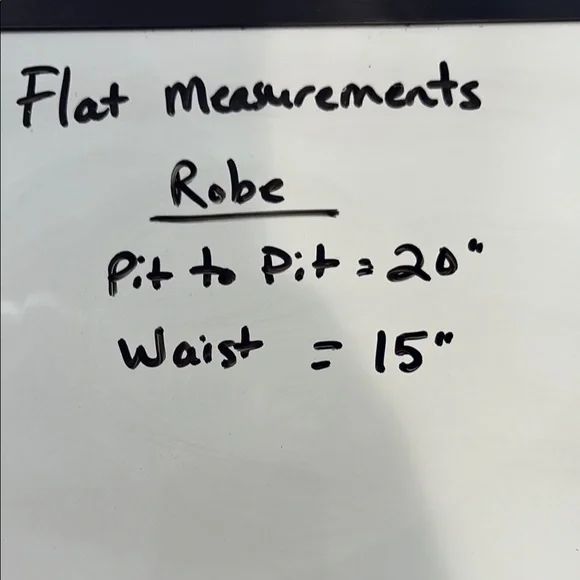 Flat Measurements
Robe
Pit to Pit = 20"
Waist = 15"